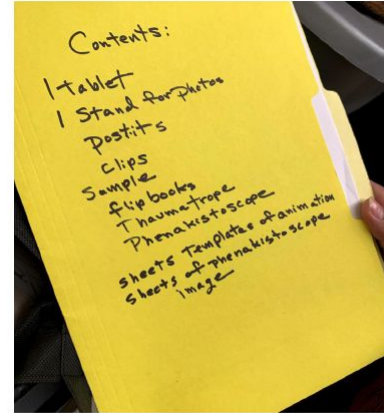 Contents:
1 tablet
1 Stand for photos
postits
clips
Sample
flipbooks
Thaumatrope
Phenakistoscope
sheets Templates of animation
sheets of phenakistoscope
image